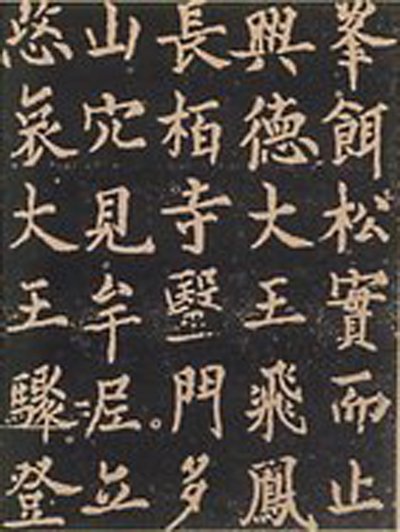 峯餌松實而止
興德大王飛鳳
長栢寺毉門多
山穴見牟尼立
愍哀大王驟登